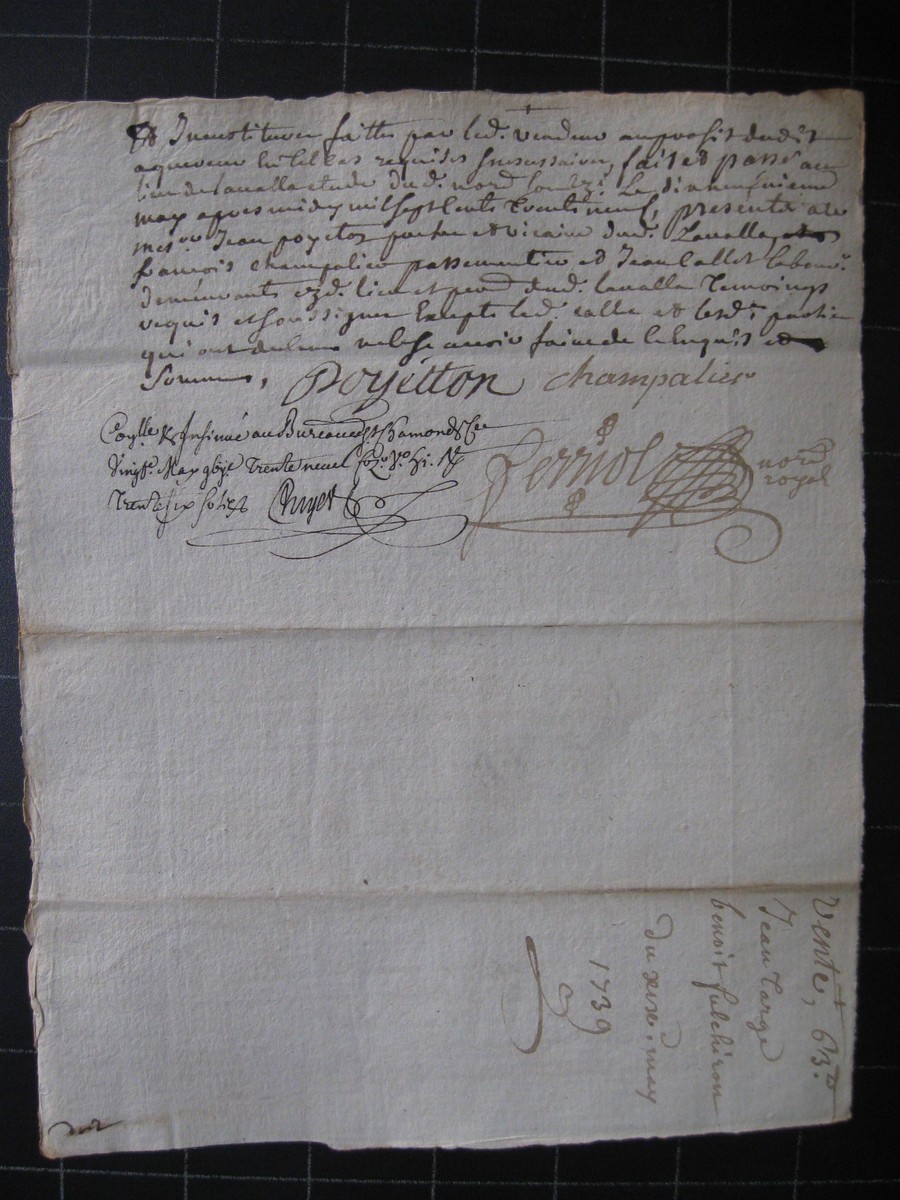 Et Investiture faitte par led. vendeur au profit dudit
acquereur en tel cas requises & nécessaires, fait et passé au
lieu de Lavalla etude dud. nore soubzé. Le dixneufvieme
may apres midy mil sept cents trente neuf, presents
mesre Jean poyeton prestre et vicaire dud. Lavalla,
francois champalier passementier et Jean Callet labour.
demeurants ezd. lieu et par. dud. lavalla Temoings
requis et soussignez Excepté led. callet et lesd. parties
qui ont declaré ne le sçavoir faire de ce Enquis et
Sommés,
Poyetton champalier
Conlle & Insinué au Bureau de St Chamond ce
Vingte. May gbije Trente neuf
Trente six sols
Ferriol nore
royal
Vente, 63
Jean Targe
benoit fulchiron
du xixe. may
1739